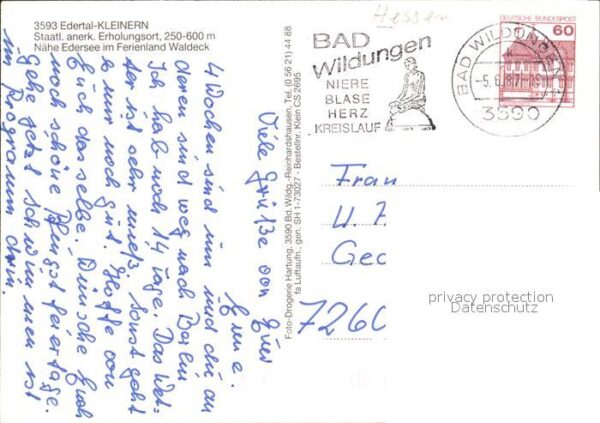 Hessen
3593 Edertal-KLEINERN
Staatl. anerk. Erholungsort, 250-600 m
Nähe Edersee im Ferienland Waldeck
4 Wochen sind nun und die an
deren sind weg nach Bonn
Ich hab noch 14 Tage. Das Wet-
ter ist sehr mieß. Sonst geht
es mir noch gut. Hoffe von
Euch das selbe. Wünsche Euch
noch schöne Pfingstfeiertage.
Gehe jetzt schwimmen ist
im Programm drin.
Viele Grüße von Eurer
Foto-Drogerie Hartung, 3590 Bd. Wildg.-Reinhardshausen, Tel. (0 56 21) 44 88
fa Luftaufn., gen. SH 1-73027 - Bestellnr. Klein CS 2695
BAD
Wildungen
NIERE
BLASE
HERZ
KREISLAUF
BAD WILDUNGEN
-5.6.87
3590
DEUTSCHE BUNDESPOST
60
Frau
Geo
7260
privacy protection
Datenschutz